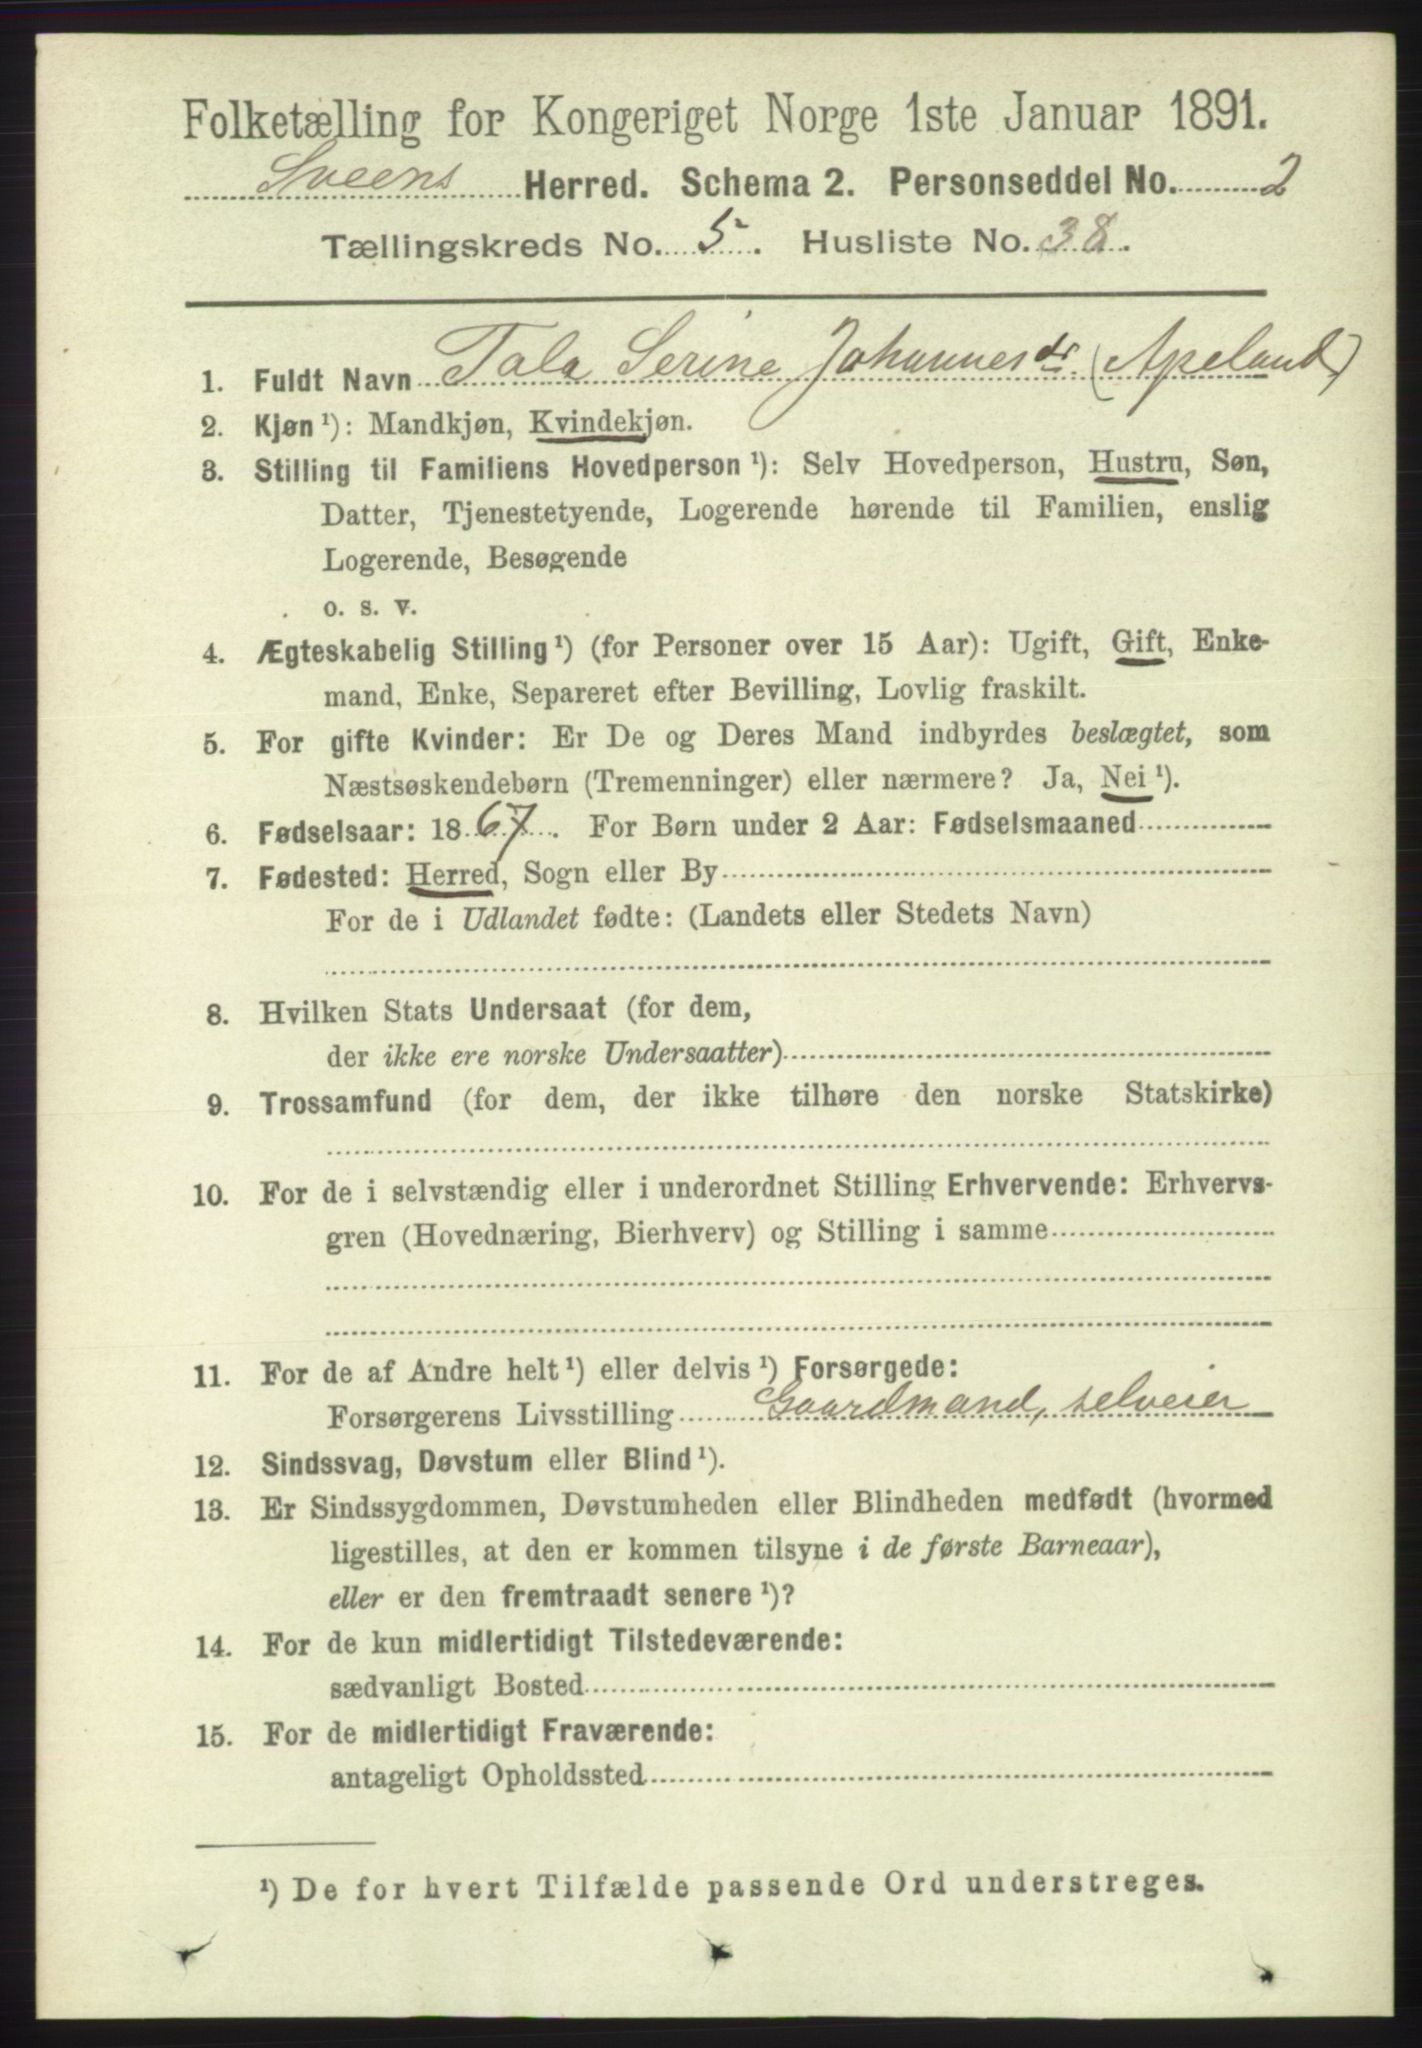 Folketælling for Kongeriget Norge 1ste Januar 1891.
Sveens Herred. Schema 2. Personseddel No. 2
Tællingskreds No. 5. Husliste No. 38.
1. Fuldt Navn Tala Serine Johannesdr (Apeland)
2. Kjøn ¹): Mandkjøn, Kvindekjøn.
3. Stilling til Familiens Hovedperson ¹): Selv Hovedperson, Hustru, Søn,
Datter, Tjenestetyende, Logerende hørende til Familien, enslig
Logerende, Besøgende
o. s. v.
4. Ægteskabelig Stilling ¹) (for Personer over 15 Aar): Ugift, Gift, Enke-
mand, Enke, Separeret efter Bevilling, Lovlig fraskilt.
5. For gifte Kvinder: Er De og Deres Mand indbyrdes beslægtet, som
Næstsøskendebørn (Tremenninger) eller nærmere? Ja, Nei ¹).
6. Fødselsaar: 1867. For Børn under 2 Aar: Fødselsmaaned
7. Fødested: Herred, Sogn eller By
For de i Udlandet fødte: (Landets eller Stedets Navn)
8. Hvilken Stats Undersaat (for dem,
der ikke ere norske Undersaatter)
9. Trossamfund (for dem, der ikke tilhøre den norske Statskirke)
10. For de i selvstændig eller i underordnet Stilling Erhvervende: Erhvervs-
gren (Hovednæring, Bierhverv) og Stilling i samme
11. For de af Andre helt ¹) eller delvis ¹) Forsørgede:
Forsørgerens Livsstilling Gaardmand, selveier
12. Sindssvag, Døvstum eller Blind ¹).
13. Er Sindssygdommen, Døvstumheden eller Blindheden medfødt (hvormed
ligestilles, at den er kommen tilsyne i de første Barneaar),
eller er den fremtraadt senere ¹)?
14. For de kun midlertidigt Tilstedeværende:
sædvanligt Bosted
15. For de midlertidigt Fraværende:
antageligt Opholdssted
¹) De for hvert Tilfælde passende Ord understreges.